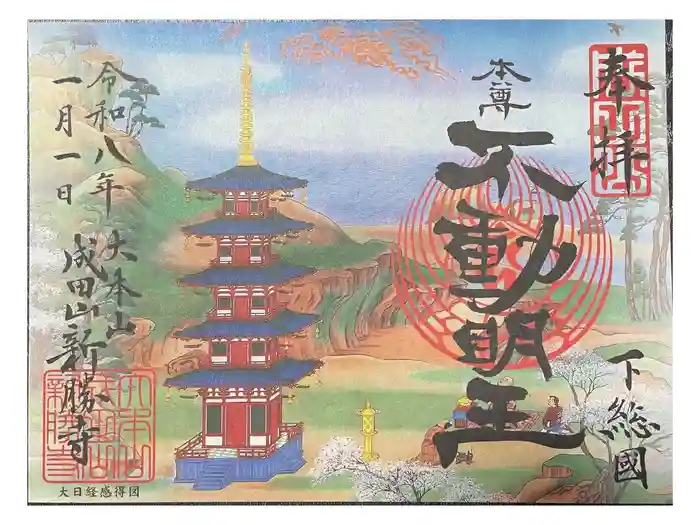 奉拝
下総國
本尊
不動明王
令和八年
一月一日
大本山
成田山新勝寺
大日経感得図